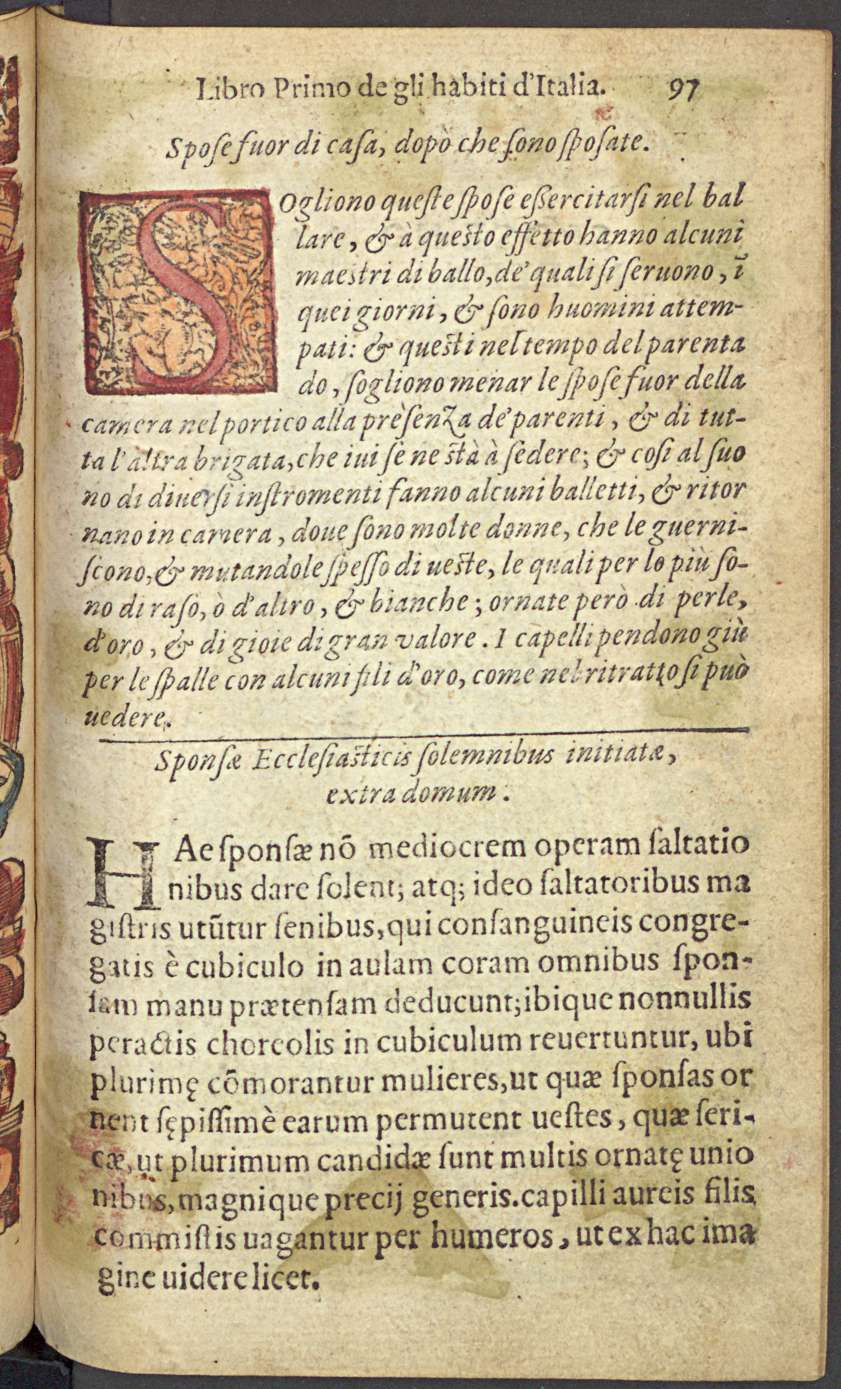 Libro Primo de gli habiti d'Italia. 97
Spose fuor di casa, dopò che sono sposate.
SOgliono queste spose essercitarsi nel bal
lare, & à questo effetto hanno alcuni
maestri di ballo, de' quali si seruono, ī
quei giorni, & sono huomini attem-
pati: & questi nel tempo del parenta
do, sogliono menar le spose fuor della
camera nel portico alla presenza de' parenti, & di tut-
ta l'altra brigata, che iui se ne stà à sedere; & cosi al suo
no di diuersi instromenti fanno alcuni balletti, & ritor
nano in camera, doue sono molte donne, che le guerni-
scono, & mutandole spesso di ueste, le quali per lo più so-
no di raso, ò d'altro, & bianche; ornate però di perle,
d'oro, & di gioie di gran valore. I capelli pendono giù
per le spalle con alcuni fili d'oro, come nel ritratto si può
uedere.
Sponsæ Ecclesiasticis solemnibus initiatæ,
extra domum.
HAe sponsæ nō mediocrem operam saltatio
nibus dare solent; atq; ideo saltatoribus ma
gistris utūtur senibus, qui consanguineis congre-
gatis è cubiculo in aulam coram omnibus spon-
sam manu prætensam deducunt; ibique nonnullis
peractis choreolis in cubiculum reuertuntur, ubi
plurimę cōmorantur mulieres, ut quæ sponsas or
nent sępissimè earum permutent uestes, quæ seri-
cæ, ut plurimum candidæ sunt multis ornatę unio
nibus, magnique precij generis. capilli aureis filis
commistis uagantur per humeros, ut ex hac ima
gine uidere licet.